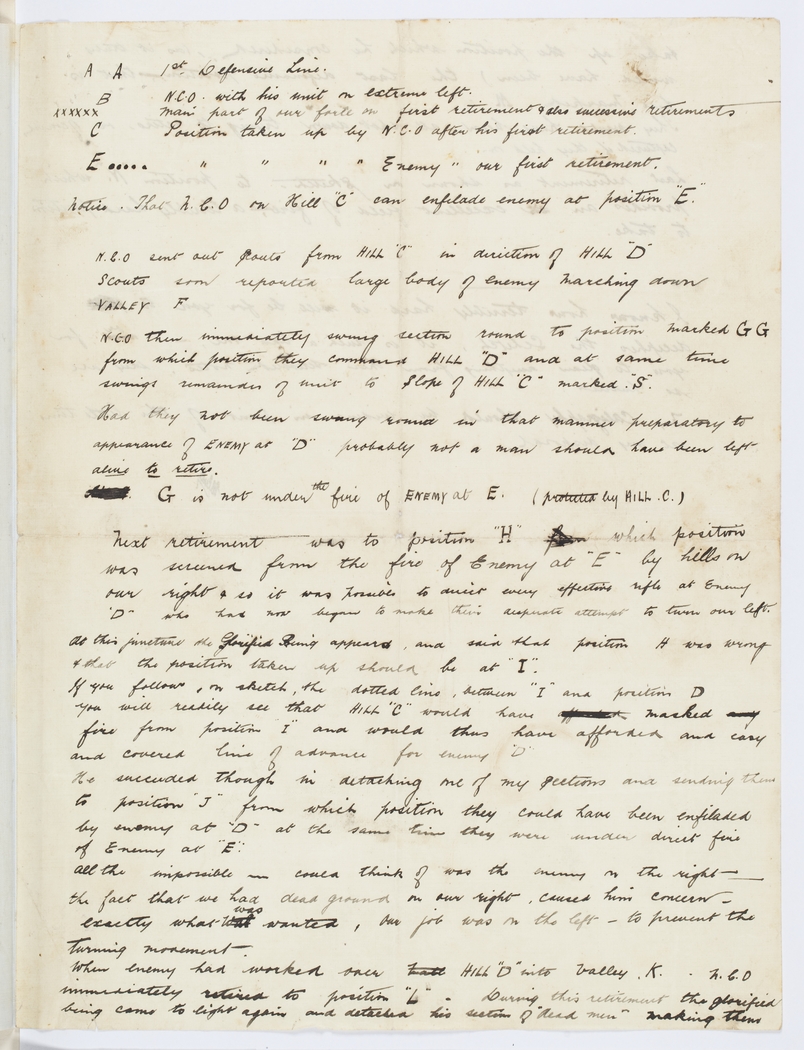 A A 1st Defensive Line.
B N.C.O. with his unit on extreme left.
xxxxxx main part of our force on first retirement & also successive retirements
C Position taken up by N.C.O after his first retirement.
E..... " " " " Enemy " our first retirement.
Notice. That N.C.O on Hill "C" can enfilade enemy at position "E."
N.C.O sent out scouts from HILL "C" in direction of HILL "D"
Scouts soon reported large body of enemy marching down
VALLEY F
N.C.O then immediately swung section round to position marked G G
from which position they command HILL "D" and at same time
swings remainder of unit to slope of HILL "C" marked "S".
Had they not been swung round in that manner preparatory to
appearance of ENEMY at "D" probably not a man should have been left
alive to retire.
G is not under the fire of ENEMY at E. (protected by HILL .C.)
Next retirement was to position "H" which position
was screened from the fire of Enemy at "E" by hills on
our right & so it was possible to direct every effective rifle at Enemy
"D" who had now began to make their desperate attempt to turn our left.
At this juncture the Glorified Being appears, and said that position H was wrong
& that the position taken up should be at "I".
If you follow, on sketch, the dotted line, between "I" and position D
you will readily see that HILL "C" would have masked
fire from position "I" and would thus have afforded and easy
and covered line of advance for enemy "D"
He succeeded though in detaching one of my sections and sending them
to position "J" from which position they could have been enfiladed
by enemy at "D" at the same time they were under direct fire
of Enemy at "E".
All the impossible — could think of was the enemy on the right —
the fact that we had dead ground on our right, caused him concern —
exactly what was wanted, our job was on the left — to prevent the
turning movement.
When enemy had worked over HILL "D" into Valley .K. - N.C.O
immediately retired to position "L" - During this retirement the glorified
being came to light again and detached his section of "dead men" making them